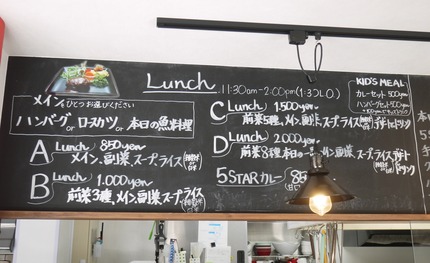 Lunch 11:30am-2:00pm(1:30L.O)
メイン、ひとつお選びください
ハンバグ or ロースカツ or 本日の魚料理
A Lunch 850yen
メイン、副菜、スープ、ライス
B Lunch 1.000yen
前菜3種、メイン、副菜、スープ、ライス
C Lunch 1.500yen
前菜5種、メイン、副菜、スープ、ライス
D Lunch 2.000yen
前菜8種、本日の、メイン、副菜、スープ、ライス、デザート
ドリンク
5STARカレー
KID'S MEAL
カレーセット 500yen
ハンバグセット 500yen